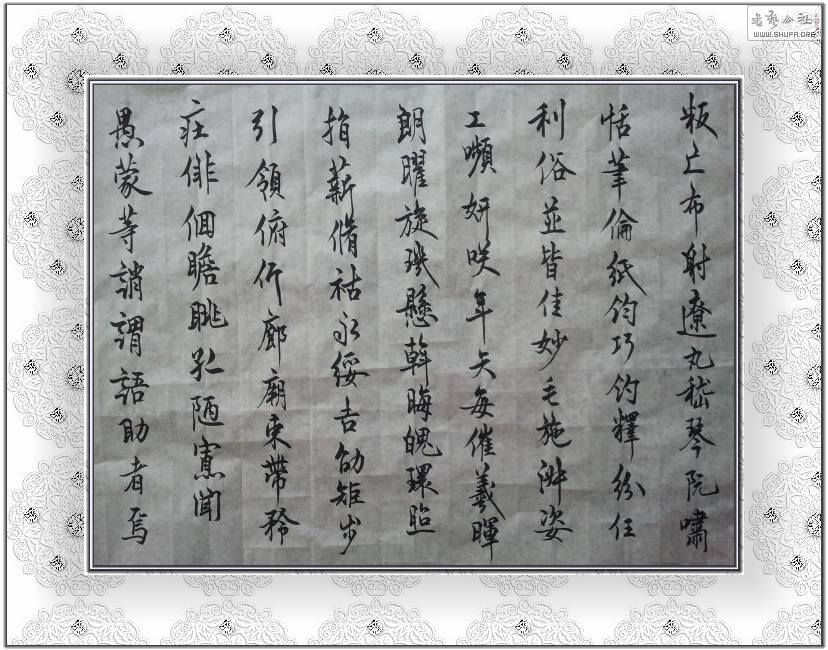 叛亡布射遼丸嵇琴阮嘯
恬筆倫紙鈞巧釣釋紛任
利俗並皆佳妙毛施淑姿
工嚬妍咲年矢每催羲暉
朗曜旋璣懸斡晦魄環照
指薪脩祜永綏吉劭矩步
引領俯仰廊廟束帶矜
莊徘徊瞻眺孤陋寡聞
愚蒙等誚謂語助者焉
WWW.SHUFA.ORG